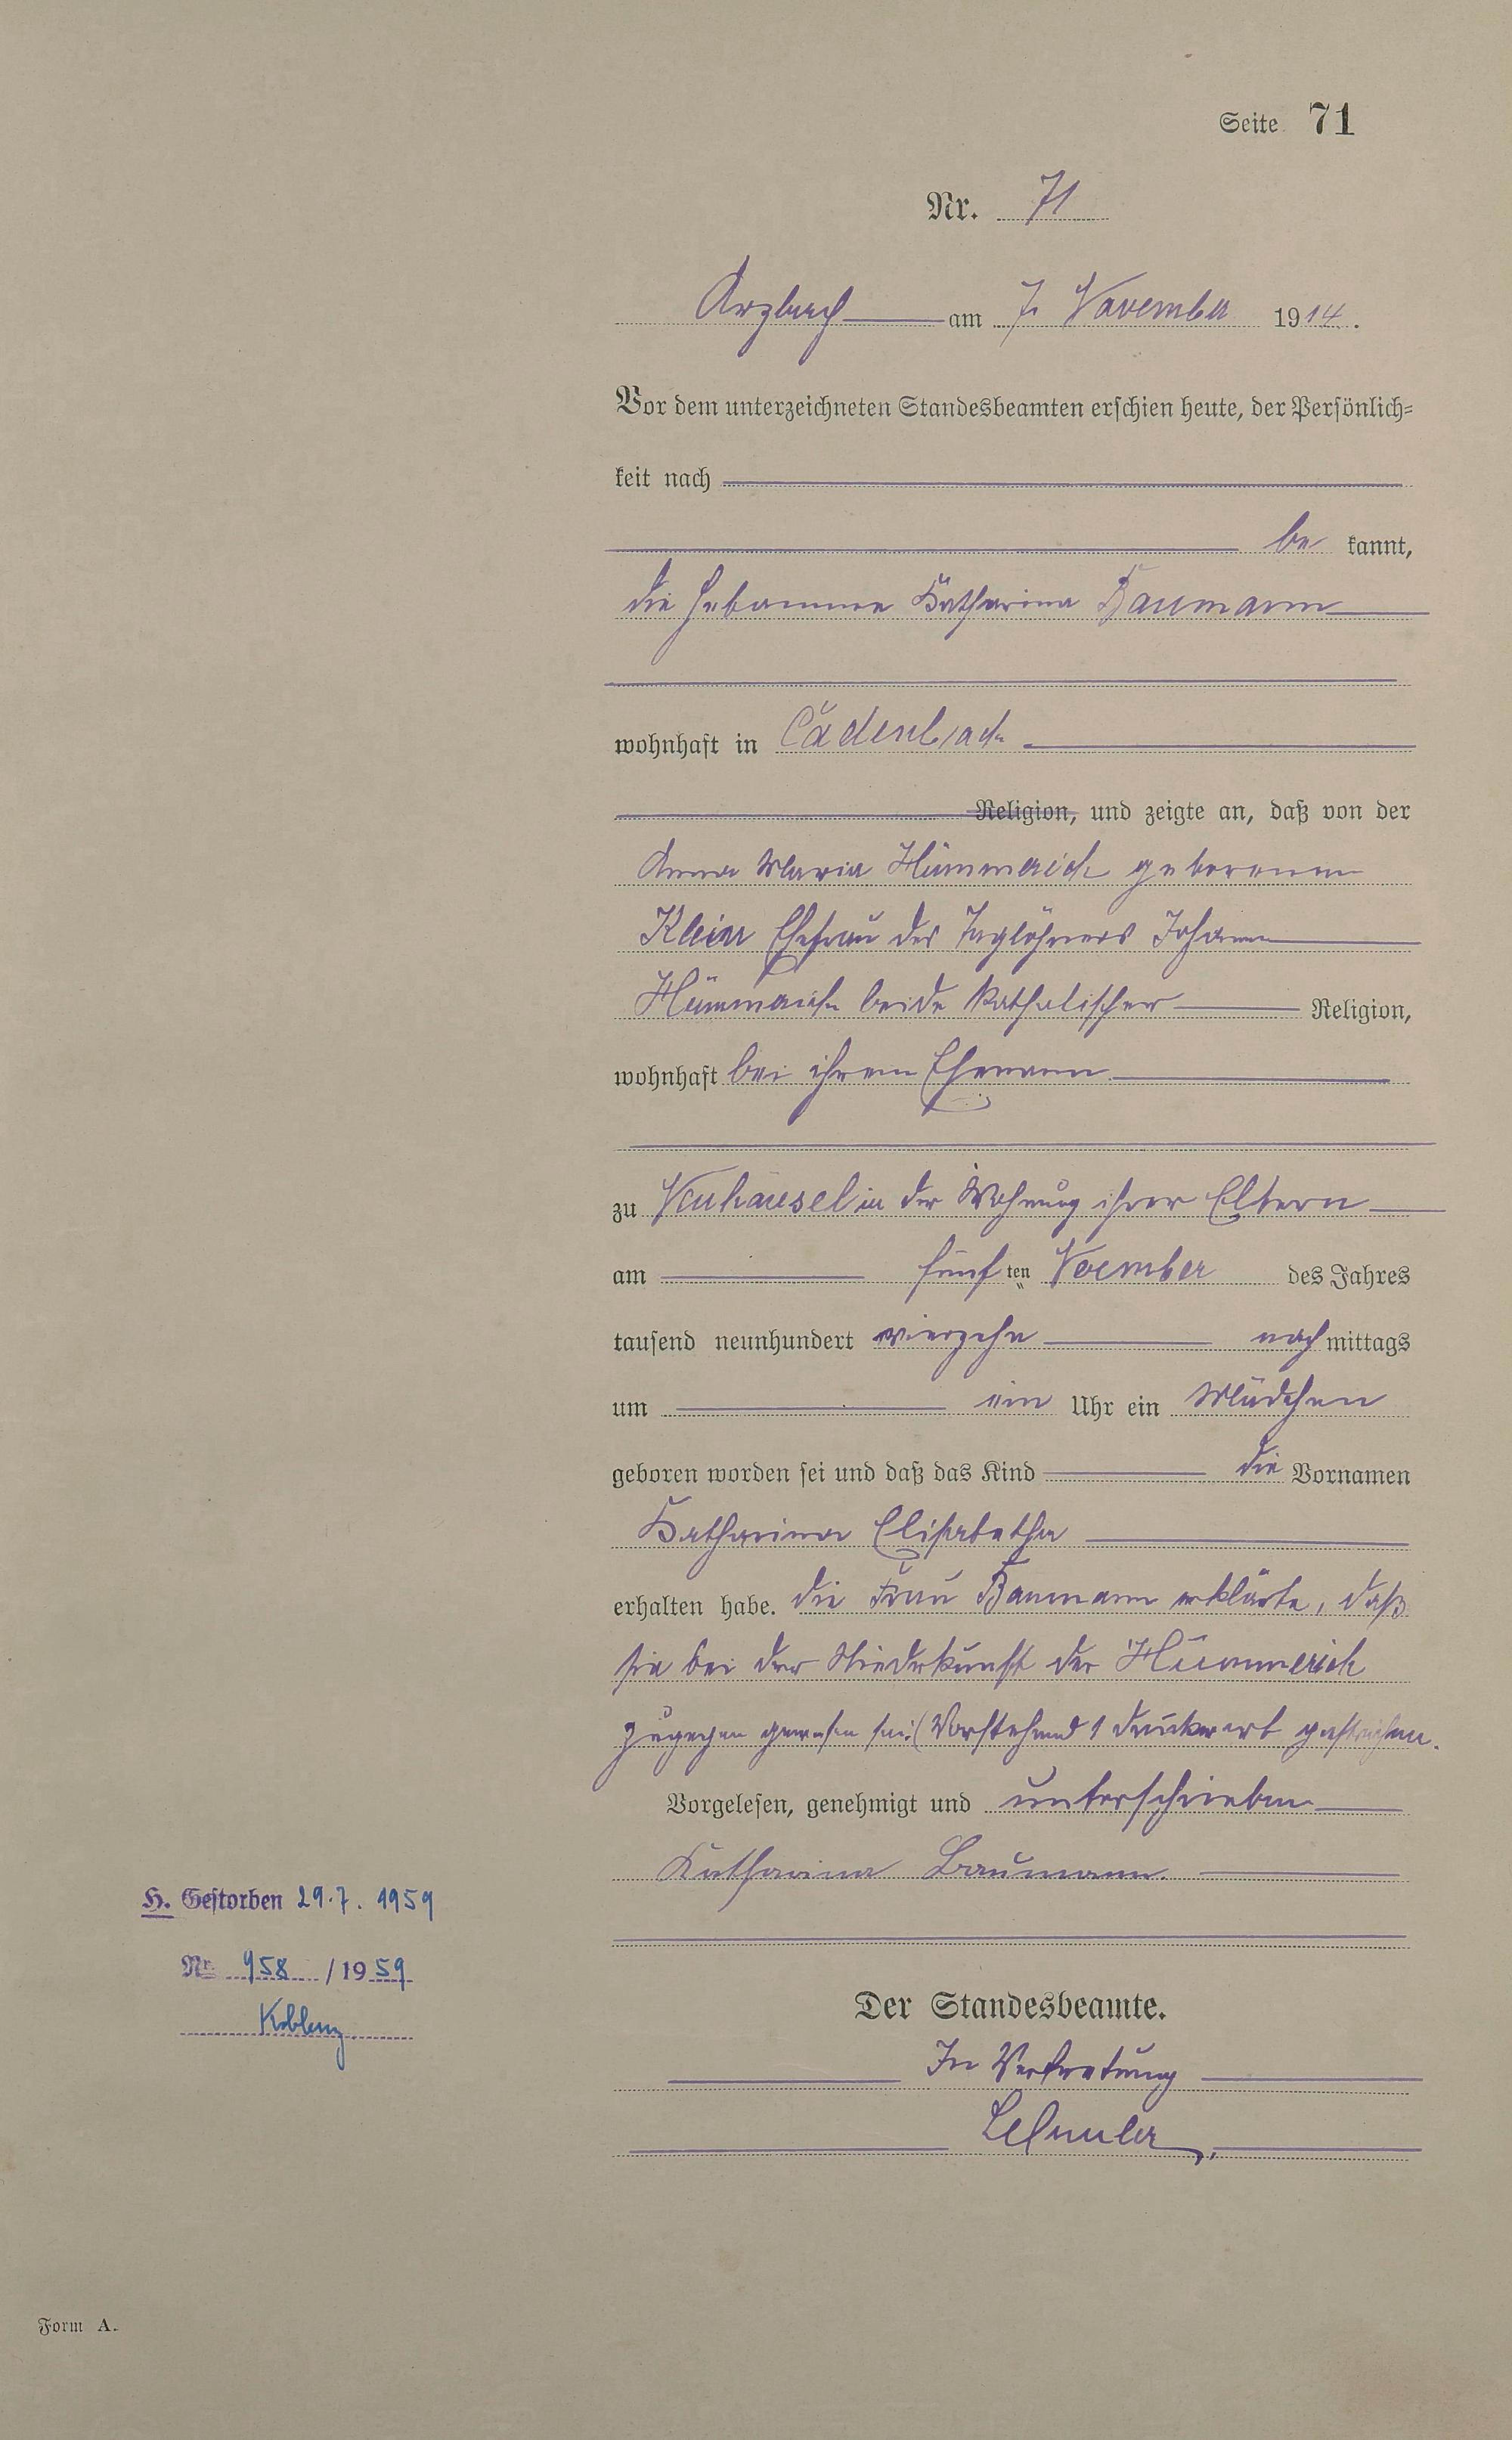 Seite 71
Nr. 71
Arzbach am 7. November 1914.
Vor dem unterzeichneten Standesbeamten erschien heute, der Persönlich-
keit nach
be kannt,
die Hebamme Katharina Baumann
wohnhaft in Cadenbach
Religion, und zeigte an, daß von der
Anna Maria Hümmerich geborenen
Klein Ehefrau des Taglöhners Johann
Hümmerich beide katholischer Religion,
wohnhaft bei ihrem Ehemann
zu Neuhäusel in der Wohnung ihrer Eltern
am fünf ten Voember des Jahres
tausend neunhundert vierzehn nach mittags
um ein Uhr ein Mädchen
geboren worden sei und daß das Kind die Vornamen
Katharina Elisabetha
erhalten habe. die Frau Baumann erklärte, daß
sie bei der Niederkunft der Hümmerich
zugegen gewesen sei. (Vorstehend 1 Druckwort gestrichen.
Vorgelesen, genehmigt und unterschrieben
Katharina Baumann.
H. Gestorben 29.7.1959
Nr. 958 / 1959
Koblenz
Der Standesbeamte.
In Vertretung
Form A.